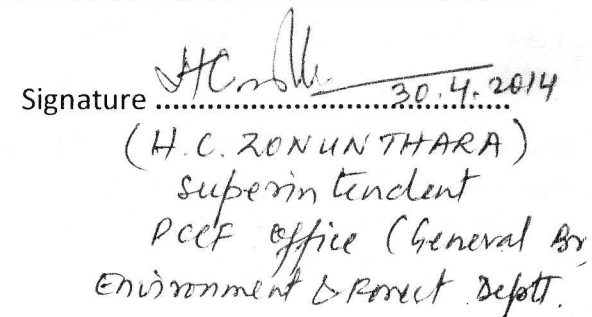 Signature ........................ 30.4.2014
(H.C. ZONUNTHARA)
Superintendent
PCCF Office (General Br
Environment & Forest Deptt.